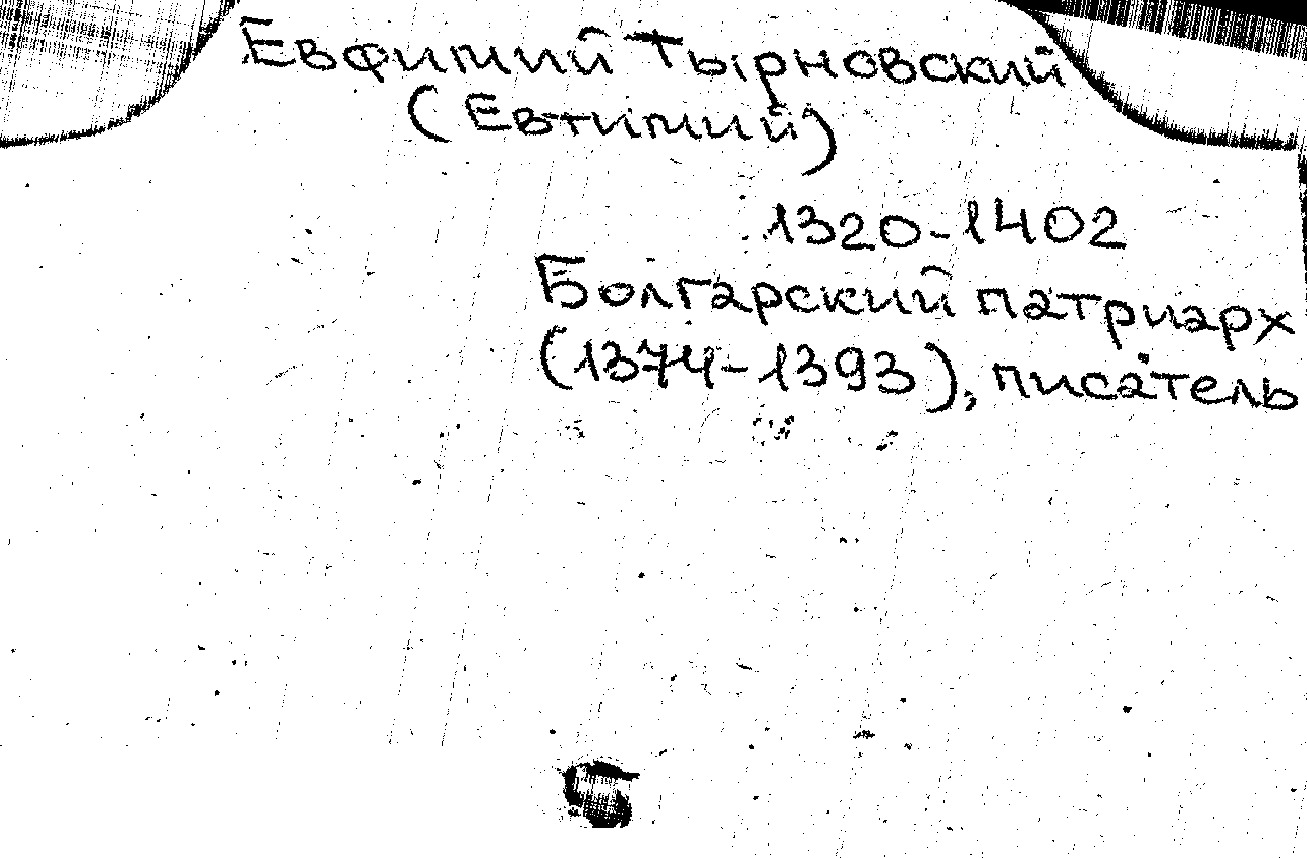 Евфимий Тырновский
(Евтимий)
1320-1402
Болгарский патриарх
(1374-1393), писатель